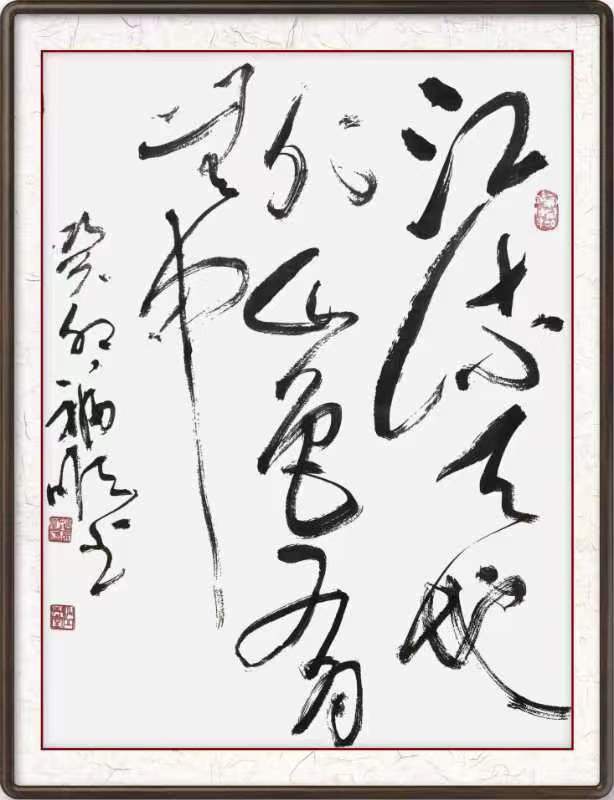 江流天地
外山色有
無中
癸卯福順书